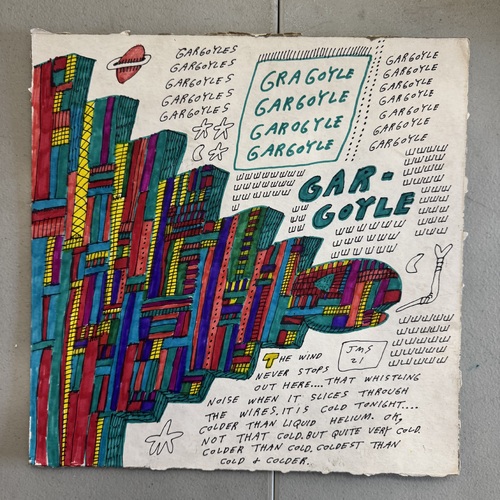 GARGOYLES
GARGOYLES
GARGOYLES
GARGOYLES
GARGOYLES
GRAGOYLE
GARGOYLE
GAROGYLE
GARGOYLE
GARGOYLE
GARGOYLE
GARGOYLE
GARGOYLE
GARGOYLE
GARGOYLE
GARGOYLE
GAR-
GOYLE
THE WIND
NEVER STOPS
OUT HERE.... THAT WHISTLING
NOISE WHEN IT SLICES THROUGH
THE WIRES. IT IS COLD TONIGHT....
COLDER THAN LIQUID HELIUM. OK,
NOT THAT COLD. BUT QUITE VERY COLD.
COLDER THAN COLD. COLDEST THAN
COLD & COLDER..
JMS
21